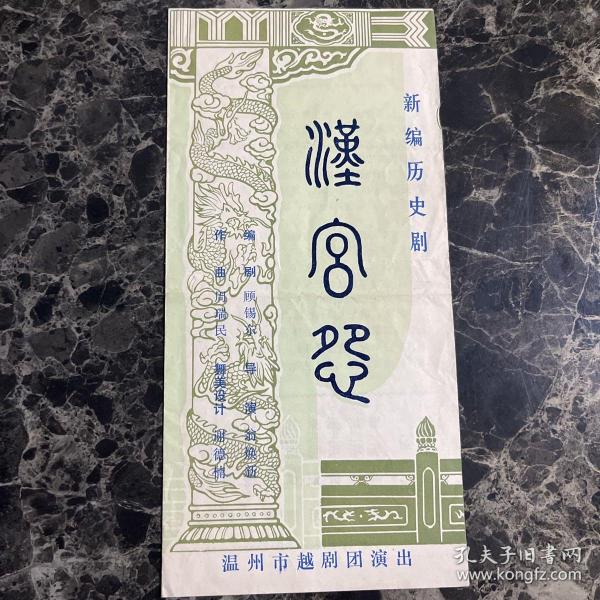 新编历史剧
漢宫怨
编剧 顾锡东 导演 翁焕新
作曲 周瑞民 舞美设计 谢德楠
温州市越剧团演出
孔夫子旧书网
www.kongfz.com